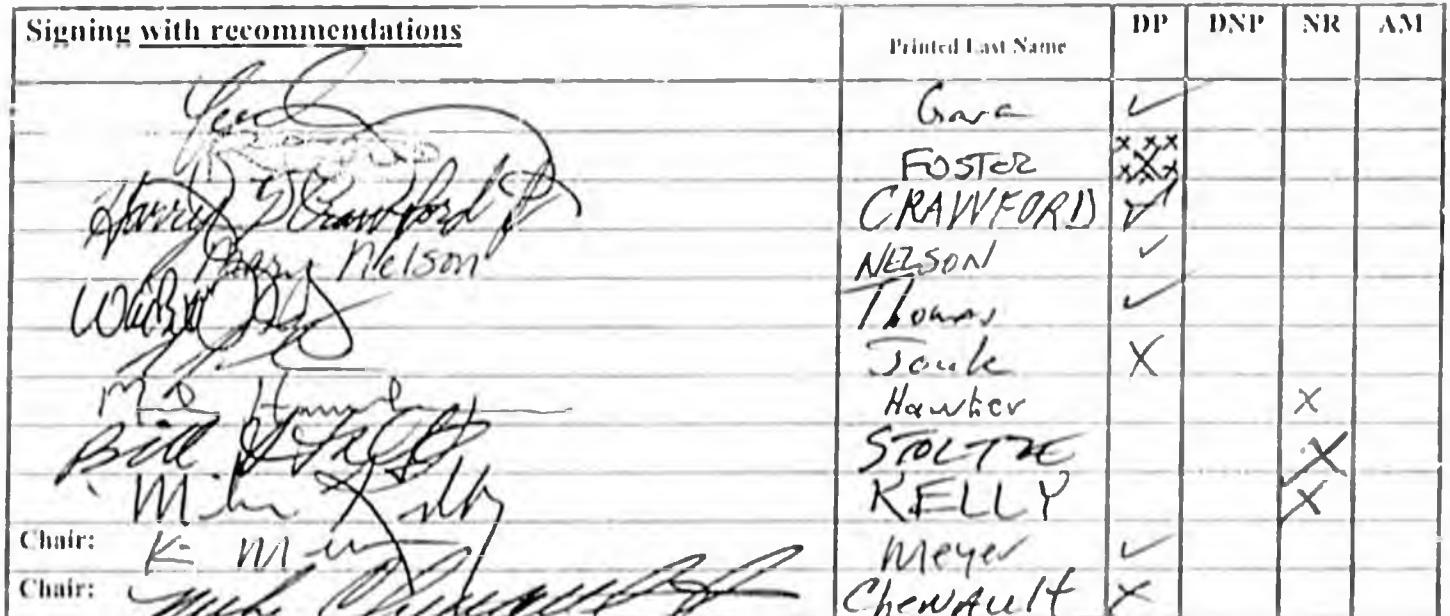 Signing with recommendations Printed Last Name DP DNP NR AM
Gara ✓
FOSTER x x x x X x x
Harry Crawford Jr CRAWFORD ✓
Mary Nelson NELSON ✓
Thomas ✓
Joule X
Mike Hawker Hawker X
Bill Stoltze STOLTZE X
Mike Kelly KELLY X
Chair: K Meyer Meyer ✓
Chair: Mike Chenault Chenault X